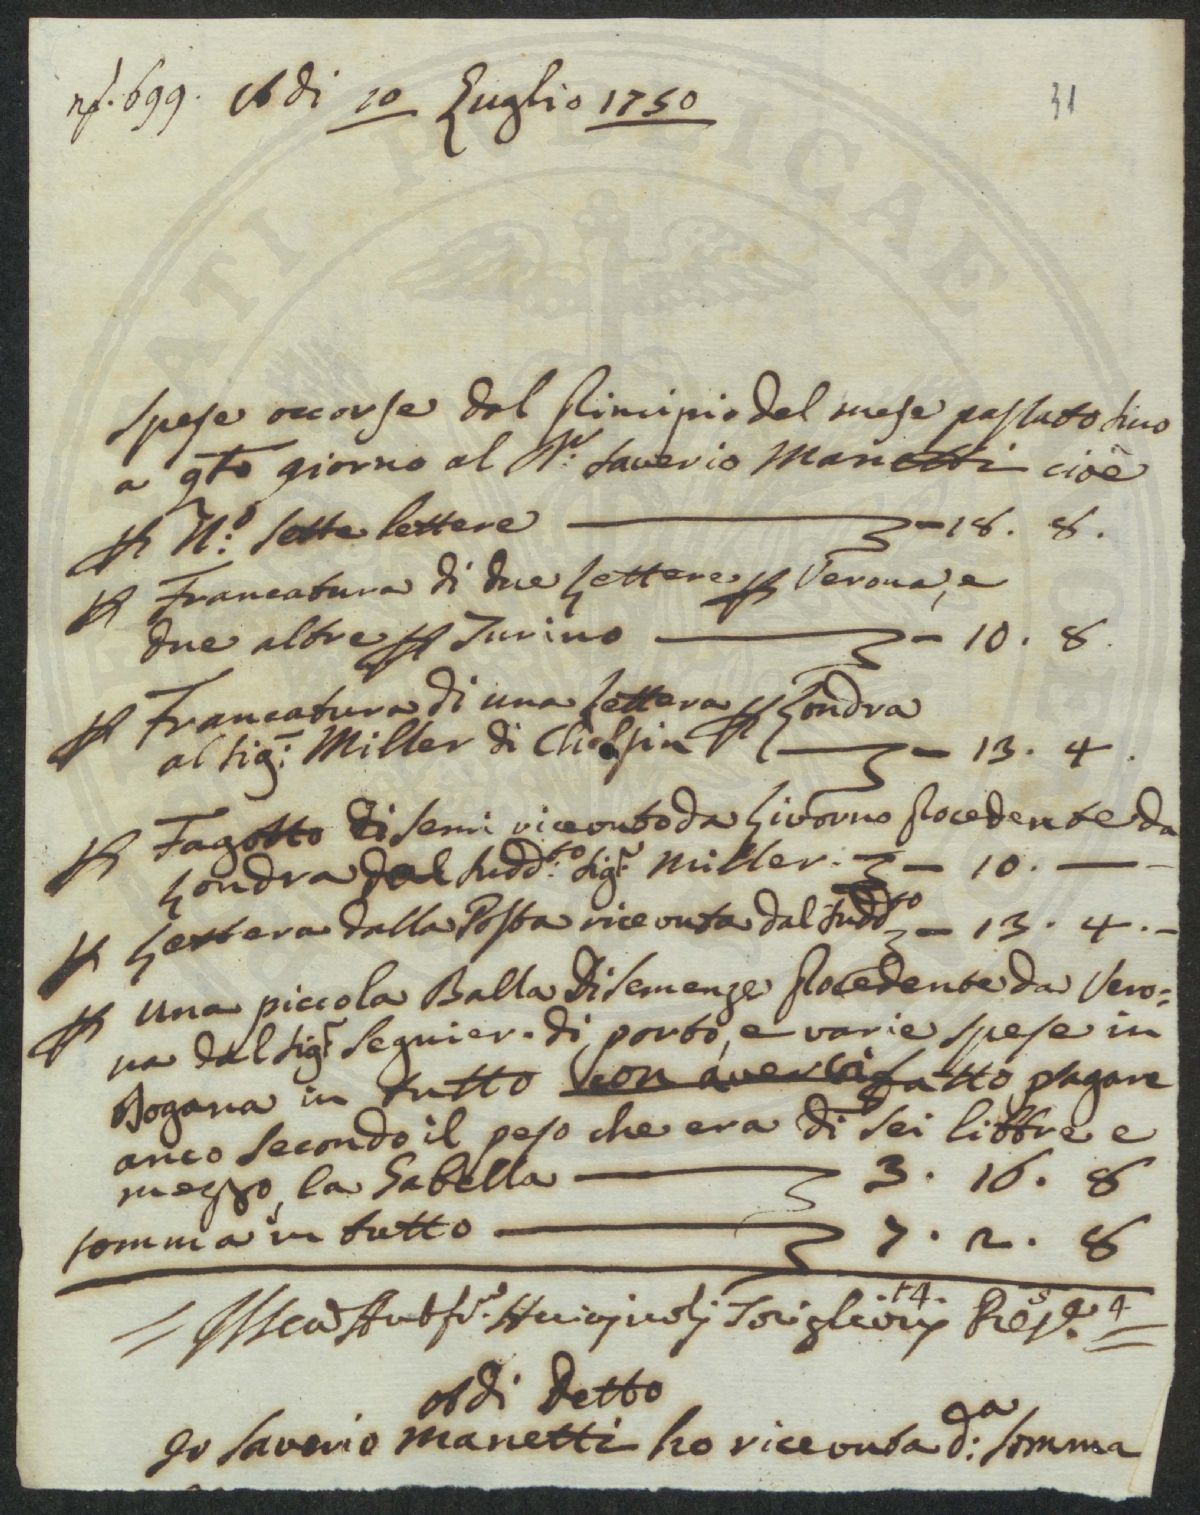 nº. 699. A di 10 Luglio 1750
31
Spese occorse dal Principio del mese passato sino
a qto giorno al Sr. Saverio Manetti cioè
Per N.º sette lettere — 18. 8.
Per Francatura di due Lettere per Verona, e
due altre per Turino — 10. 8.
Per Francatura di una Lettera per Londra
al Sigr. Miller di Chelsin — 13. 4.
Per Fagotto di semi riceuto da Livorno procedente da
Londra dal sudd.to Sigr. Miller. — 10. —
Per Lettera dalla Posta riceuta dal sudd.to — 13. 4. -
Per una piccola Balla di semenze procedente da Vero=
na dal Sigr. Seguier. di porto, e varie spese in
Dogana in tutto con averci fatto pagare
anco secondo il peso che era di sei libbre e
mezzo, la Gabella — 3. 16. 8
somma in tutto — 7. 2. 8
A di Detto
Io Saverio Manetti ho riceuta d:a somma